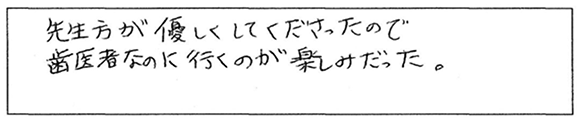 先生方が優しくしてくださったので
歯医者なのに行くのが楽しみだった。